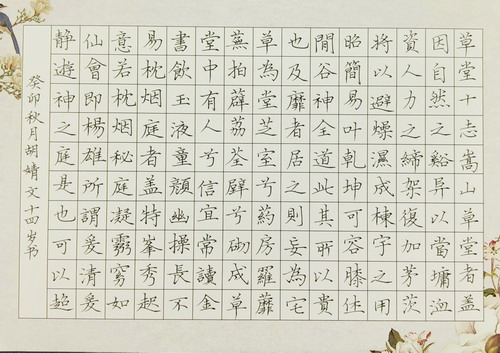 草堂十志嵩山草堂者盖
因自然之谿阜以當墉洫
资人力之締架復加茅茨
将以避燥濕成棟宇之用
昭簡易叶乾坤可容膝休
閒谷神全道此其所以貴
也及靡者居之則妄為宅
草為堂芝室兮葯房羅蘼
蕪拍薜荔荃壁兮砌成草
堂中有人兮信宜常讀金
書飲玉液童顏幽操長不
易枕烟庭者盖特峯秀起
意若枕烟秘庭凝霧窮如
仙會即楊雄所謂爰清爰
静遊神之庭是也可以超
癸卯秋月胡婧文十四岁书